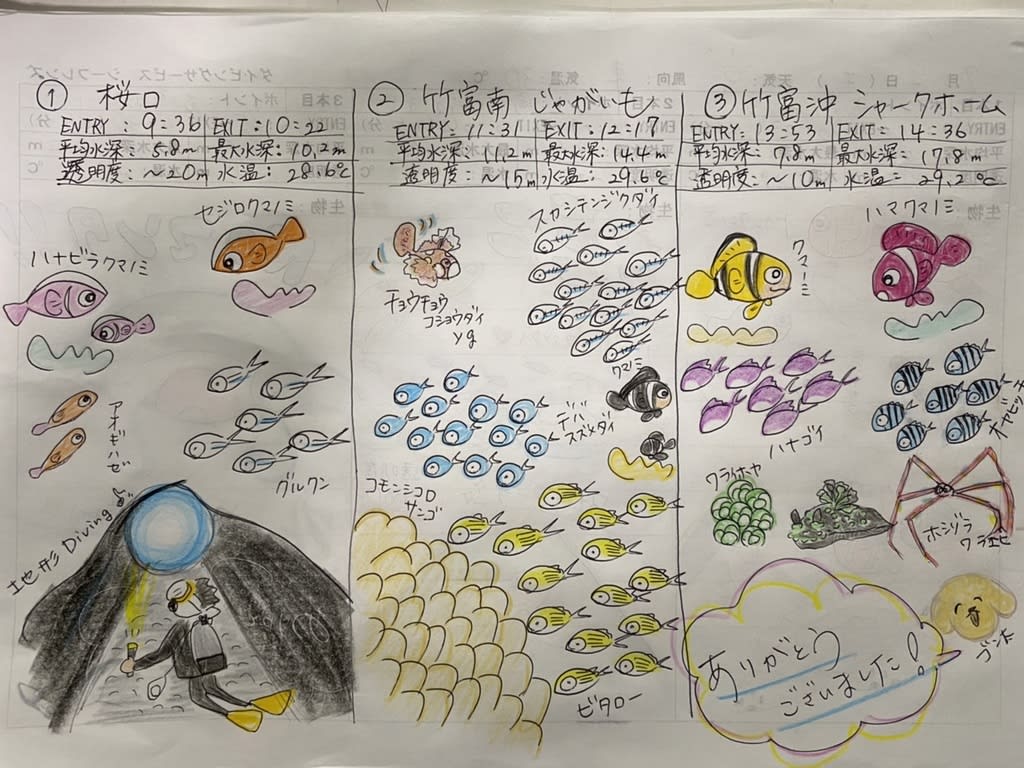 ① 桜口
ENTRY : 9:36 EXIT:10:22
平均水深:5.8m 最大水深:10.2m
透明度:~20m 水温:28.6℃
セジロクマノミ
ハナビラクマノミ
アオギハゼ
グルクン
地形Diving♪
② 竹富南 じゃがいも
ENTRY:11:31 EXIT:12:17
平均水深:11.2m 最大水深:14.4m
透明度:~15m 水温:29.6℃
スカシテンジクダイ
チョウチョウ
コショウダイ
yg
クマノミ
デバ
スズメダイ
コモンシコロ
サンゴ
ビタロー
③ 竹富沖 シャークホーム
ENTRY:13:53 EXIT:14:36
平均水深:7.8m 最大水深:17.8m
透明度:~10m 水温:29.2℃
ハマクマノミ
クマノミ
ハナゴイ
オヤビッチャ
ワライボヤ
ホシゾラ
ワラエビ
ありがとう
ございました!
ダイビングサービス シーフレンズ
月 日( ) 天気: 風向: 気温: ℃
3本目 ポイント:
生物: